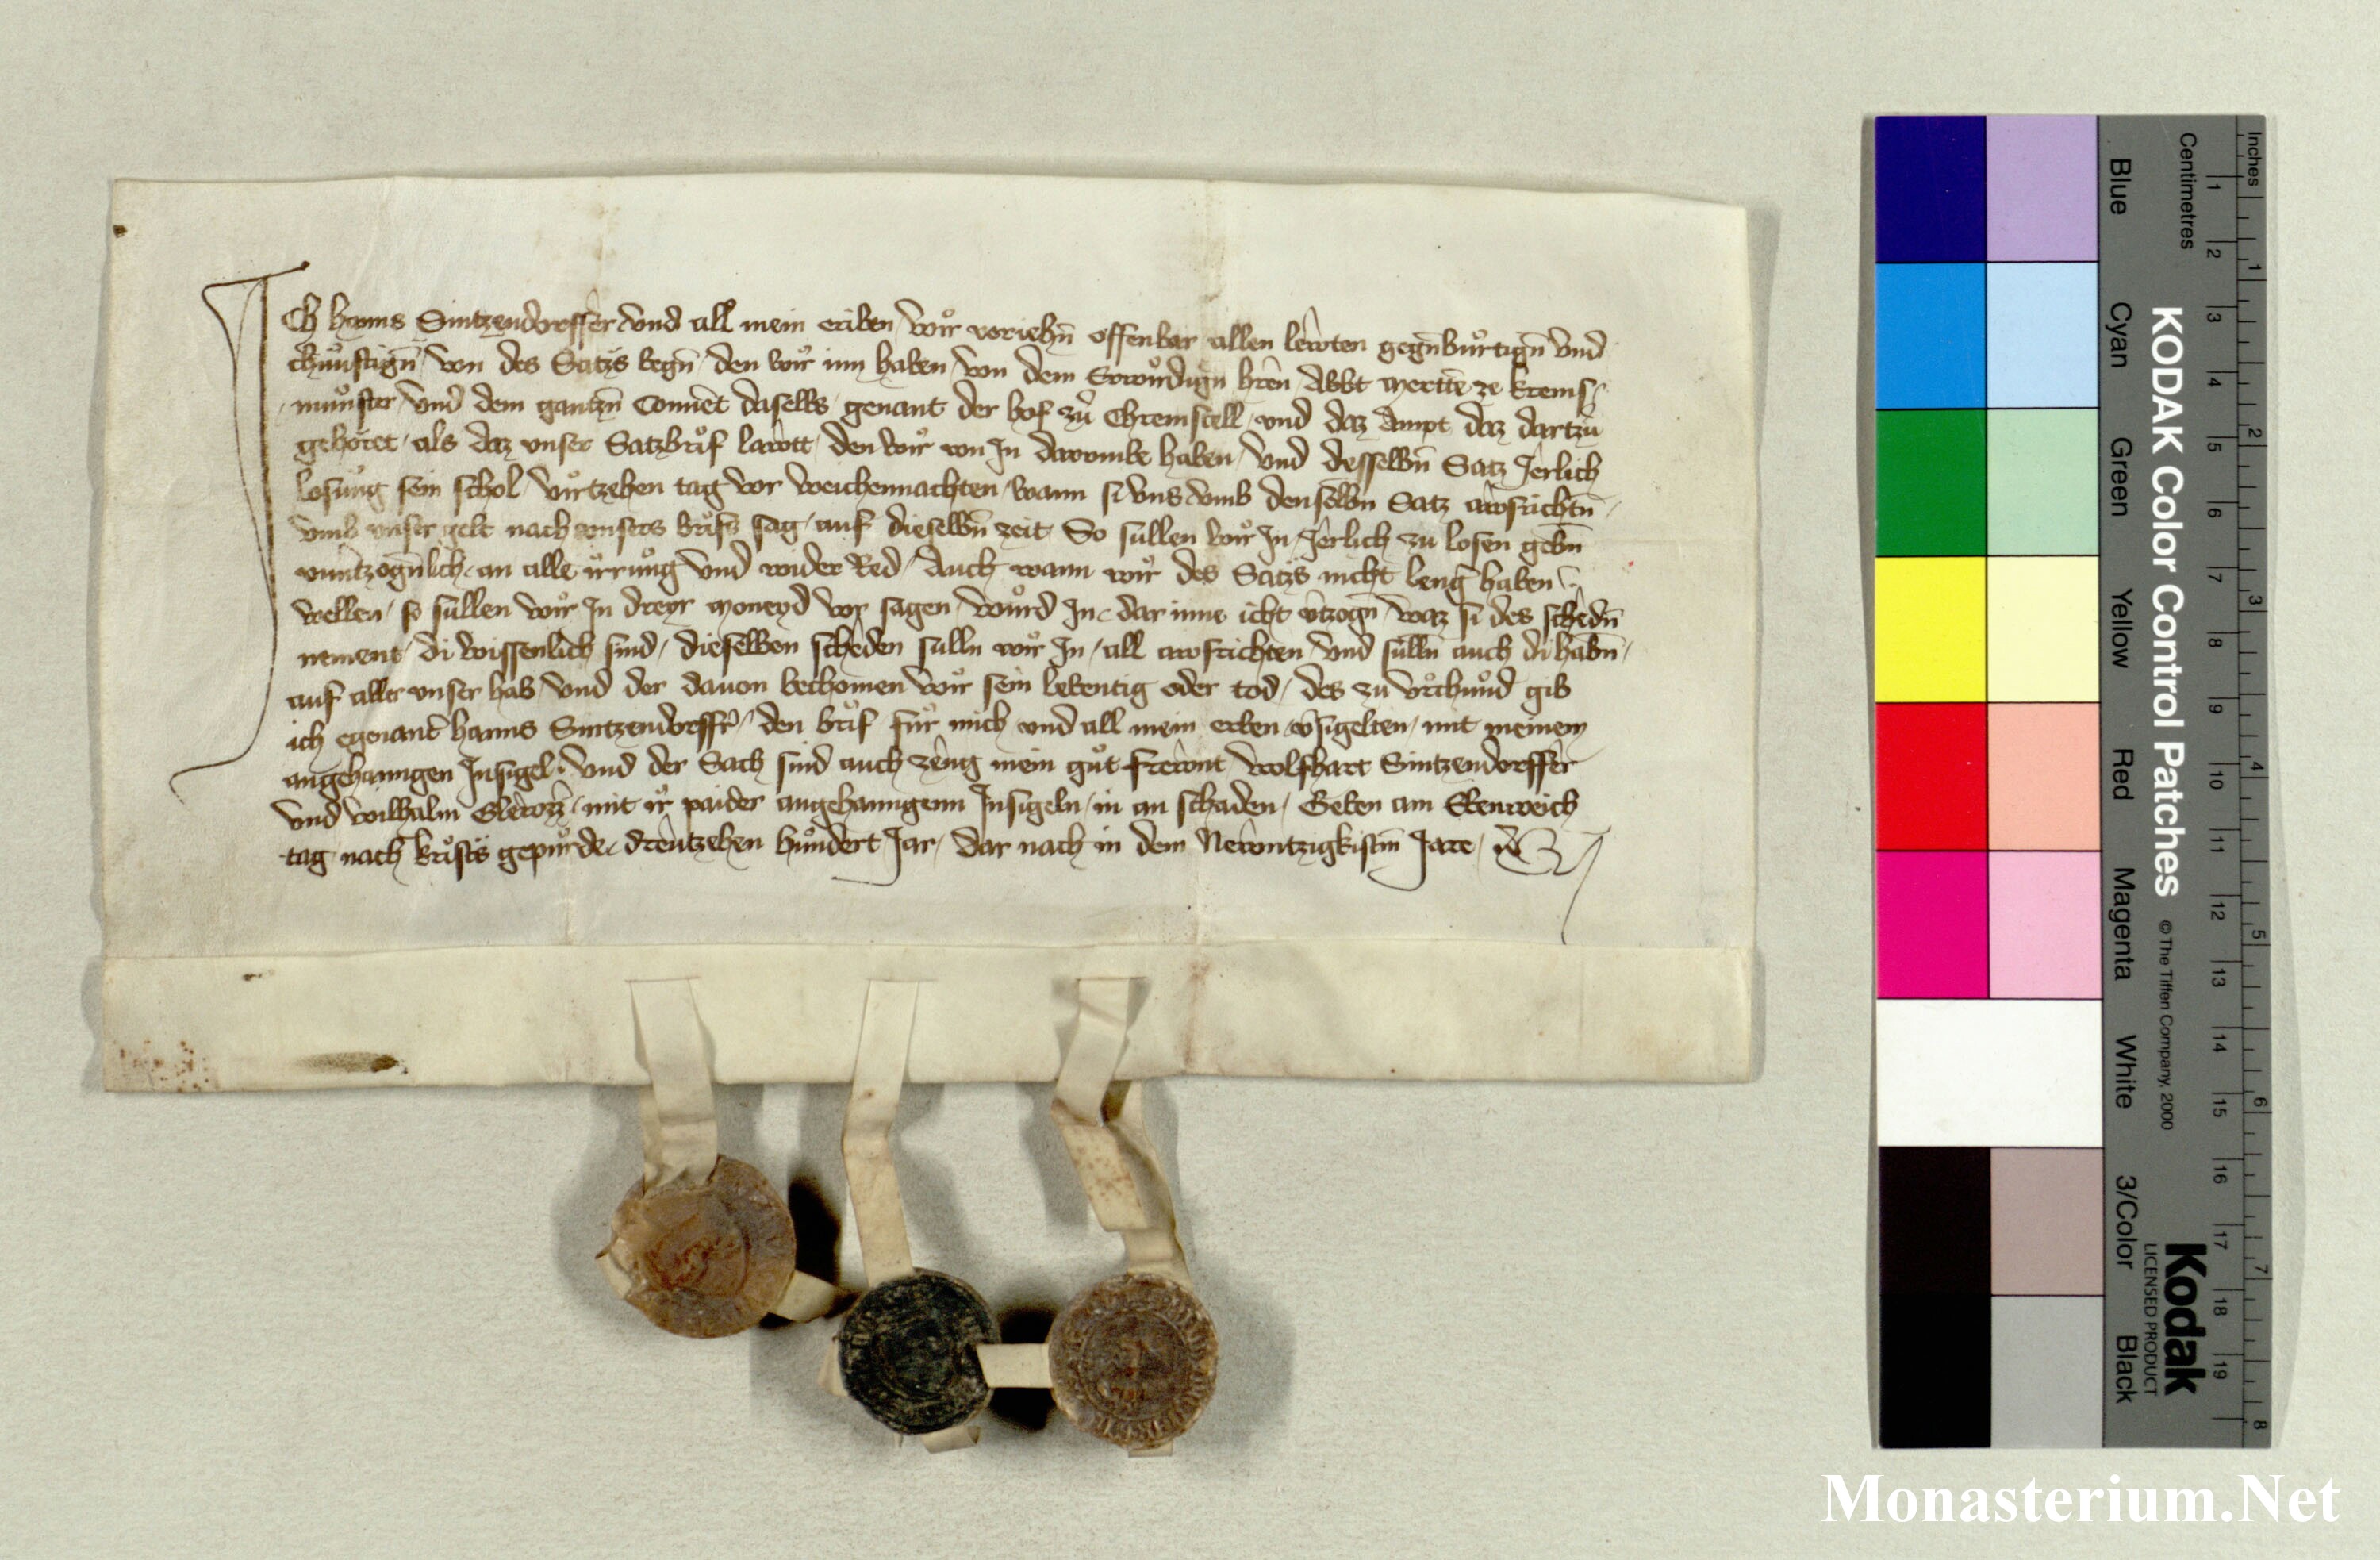 Ich Hanns Sintzendorffer vnd all mein eriben wir veriehn̄ offenbar allen lewten gegn̄bu̇rtign̄ vnd
chu̇nftign̄ von des Satzs wegn̄ den wir inn haben von dem Erwirdign̄ hern̄ Abbt Mertten ze Krems
mu̇nster vnd dem gantzn̄ Conuent daselbs genant der hof zu̇ Chremscell vnd daz Ampt daz dartzu̇
gehoret als daz vnser Satzbrif lawtt den wir von In darvmbe haben vnd desselbn̄ Satz Jerlich
losu̇ng sein schol virtzehen tag vor weichennachten wann si vns vmb denselbn̄ Satz awsrichtn̄
vmb vnser gelt nach vnsers brifs sag auf dieselbn̄ zeit So sullen wir In Jerlich zu losen gebn̄
vnuertzogn̄lich an alle irrung vnd wider Red Auch wann wir des Satzs nicht lenḡ haben
wellen so sullen wir In dreyr Moneyd vor sagen wu̇rd In dar inne icht v̄tzogn̄ waz si des schedn̄
nement di wissenlich sind dieselben scheden sulln wir In all awsrichten vnd sulln auch di habn̄
auf aller vnser hab vnd der dauon bechomen wir sein lebentig oder tod des zu vrchund gib
ich egenant Hanns Sintzendorffer den brif fu̇r mich vnd all mein erben v̄sigelten mit meinem
angehanngen Insigel vnd der Sach sind auch zewg mein gu̇t frewnt Wolfhart Sintzendorffer
vnd Wilhalm mit ir paider angehanngenn Insigeln in an schaden Geben am Ebenweich
tag nach Krists gepu̇rde drewtzehen hundert Jar dar nach in dem Newntzigkistm̄ Jare
KODAK Color Control Patches
© The Tiffen Company, 2000
Kodak
LICENSED PRODUCT
Inches
Centimetres
1 2 3 4 5 6 7 8 9 10 11 12 13 14 15 16 17 18 19
1 2 3 4 5 6 7 8
Blue
Cyan
Green
Yellow
Red
Magenta
White
3/Color
Black
Monasterium.Net